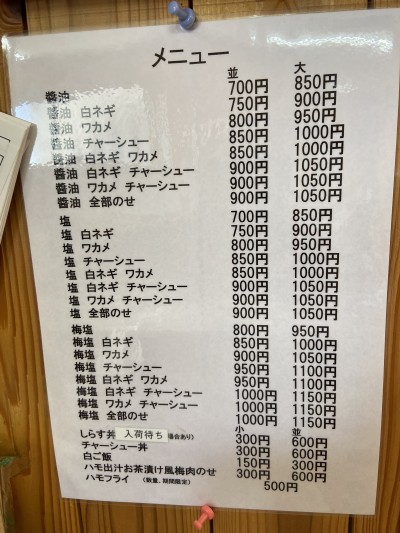 メニュー
並 大
醤油 700円 850円
醤油 白ネギ 750円 900円
醤油 ワカメ 800円 950円
醤油 チャーシュー 850円 1000円
醤油 白ネギ ワカメ 850円 1000円
醤油 白ネギ チャーシュー 900円 1050円
醤油 ワカメ チャーシュー 900円 1050円
醤油 全部のせ 900円 1050円
塩 700円 850円
塩 白ネギ 750円 900円
塩 ワカメ 800円 950円
塩 チャーシュー 850円 1000円
塩 白ネギ ワカメ 850円 1000円
塩 白ネギ チャーシュー 900円 1050円
塩 ワカメ チャーシュー 900円 1050円
塩 全部のせ 900円 1050円
梅塩 800円 950円
梅塩 白ネギ 850円 1000円
梅塩 ワカメ 900円 1050円
梅塩 チャーシュー 950円 1100円
梅塩 白ネギ ワカメ 950円 1100円
梅塩 白ネギ チャーシュー 1000円 1150円
梅塩 ワカメ チャーシュー 1000円 1150円
梅塩 全部のせ 1000円 1150円
小 並
しらす丼 入荷待ち 場合あり) 300円 600円
チャーシュー丼 300円 600円
白ご飯 150円 300円
ハモ出汁お茶漬け風梅肉のせ 300円 600円
ハモフライ (数量、期間限定) 500円